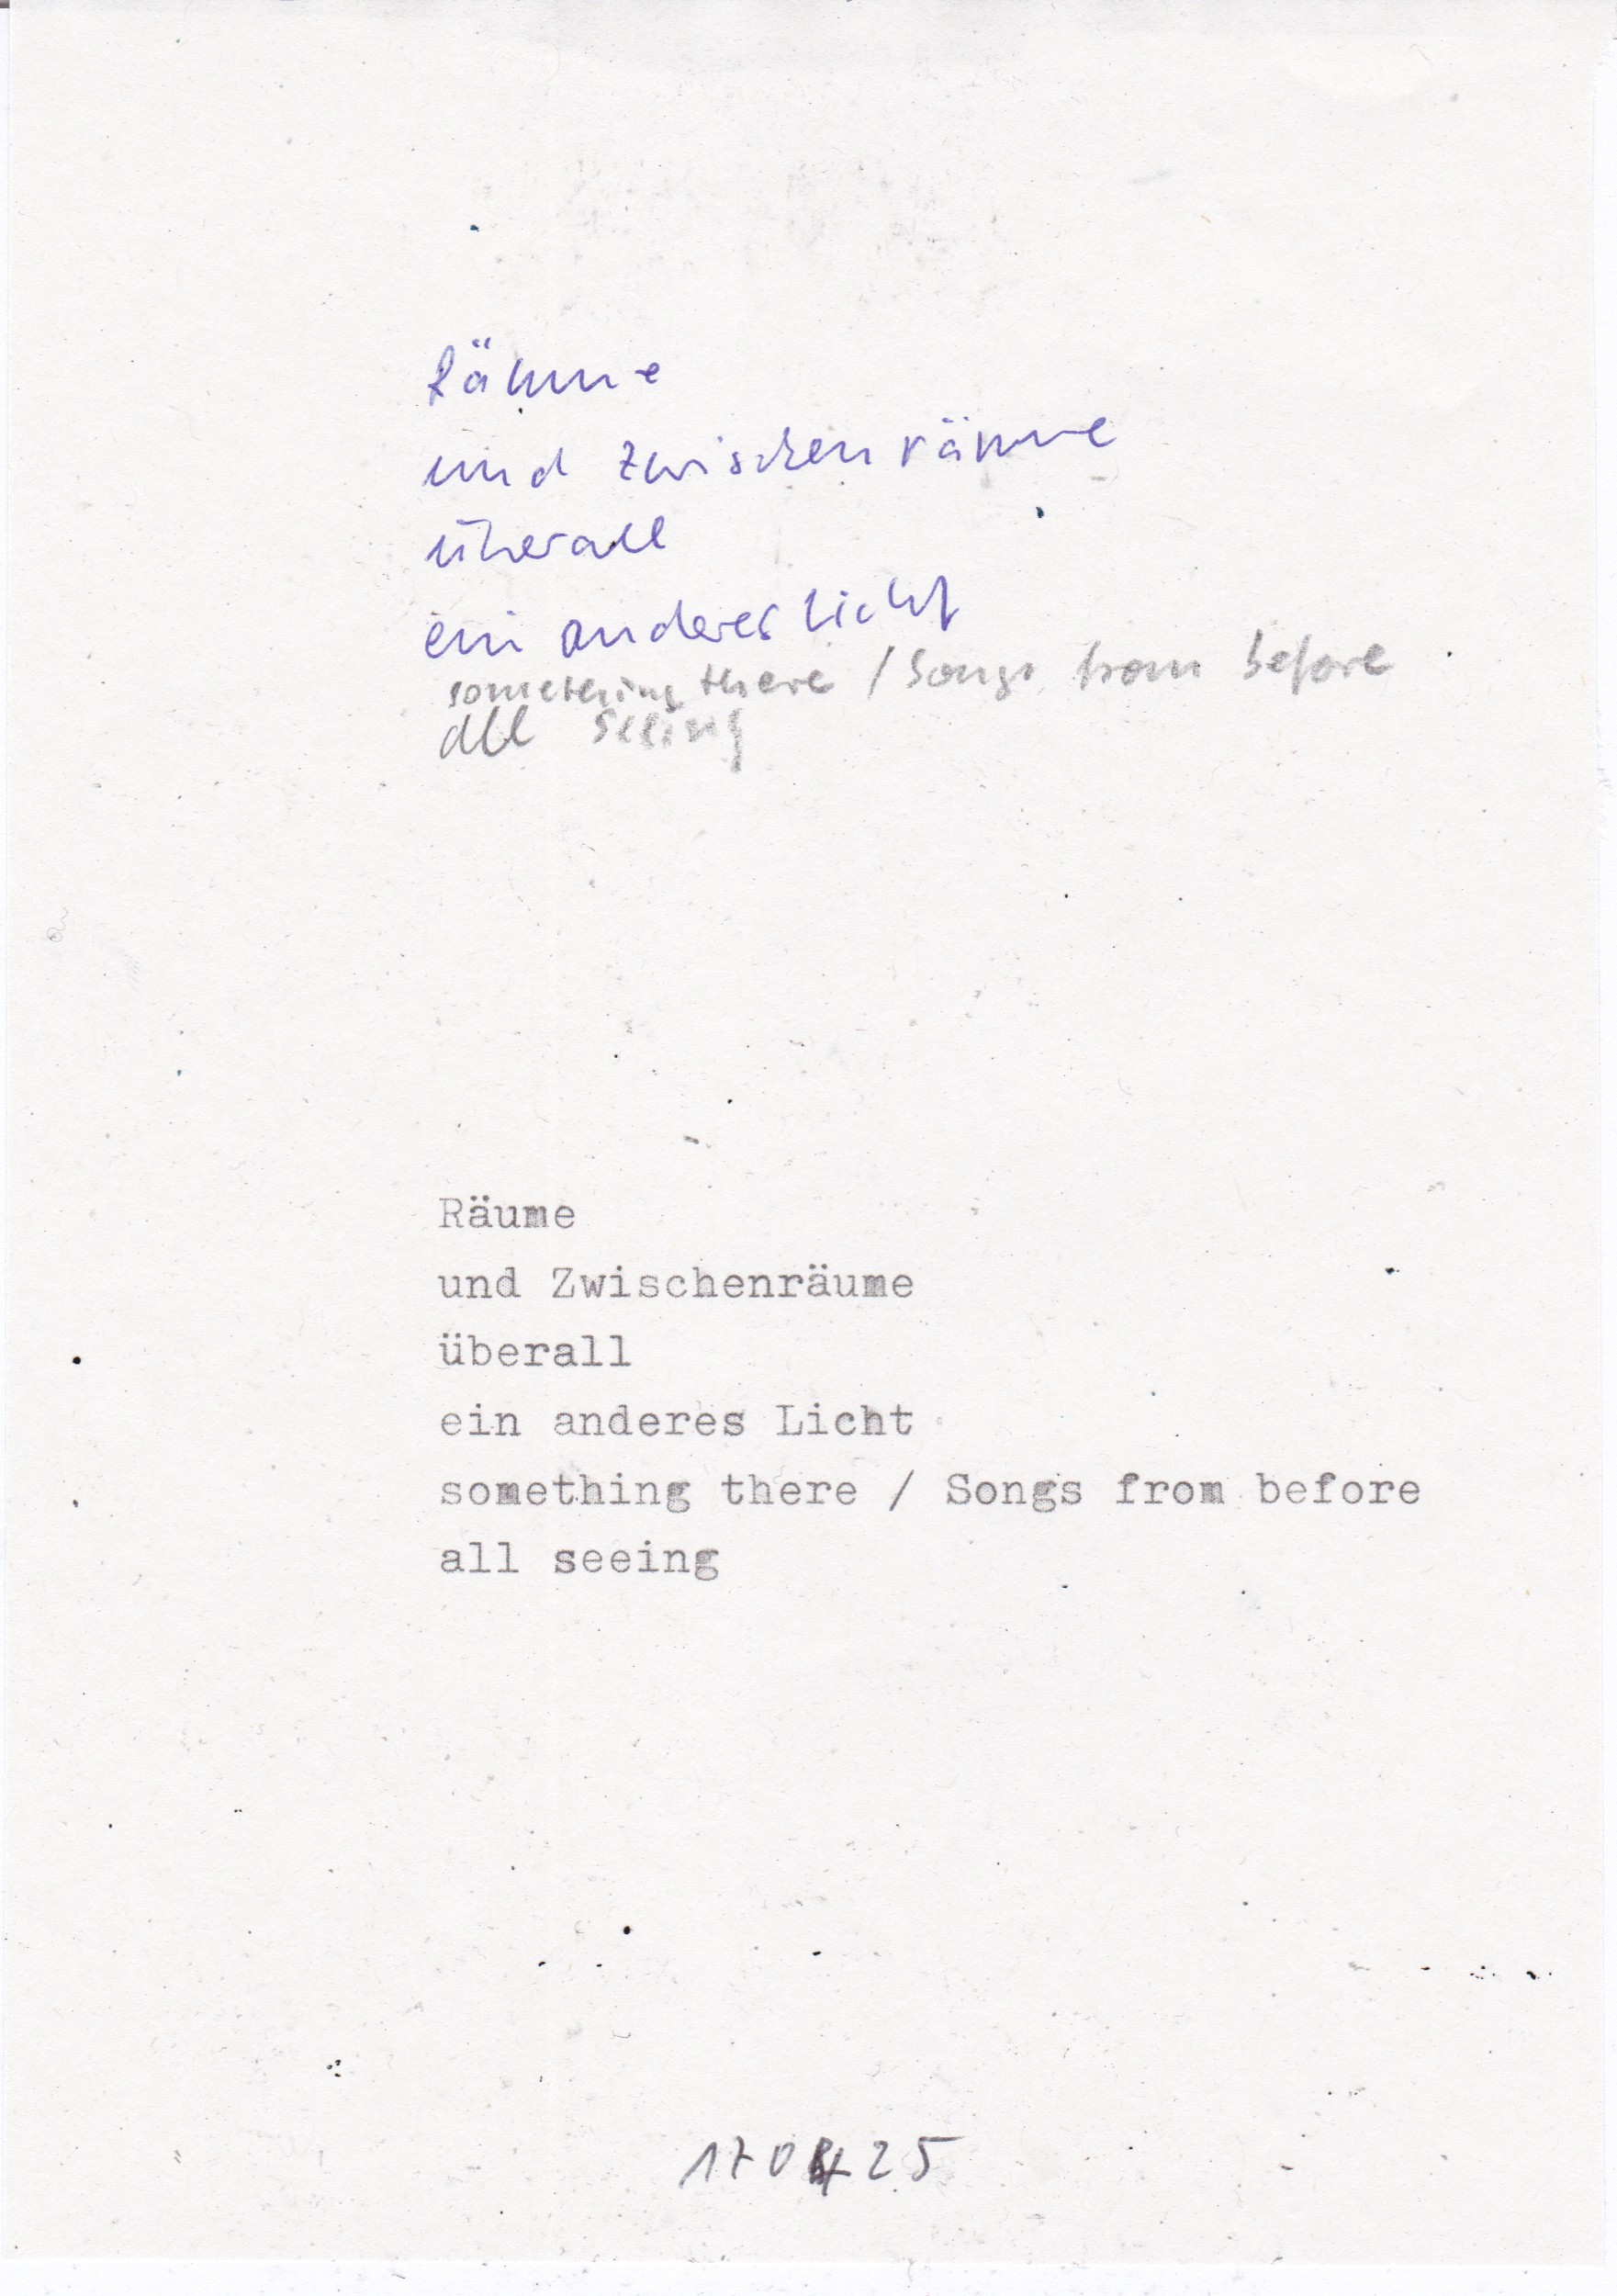 Räume
und Zwischenräume
überall
ein anderes Licht
something there / Songs from before
all seeing
Räume
und Zwischenräume
überall
ein anderes Licht
something there / Songs from before
all seeing
170425